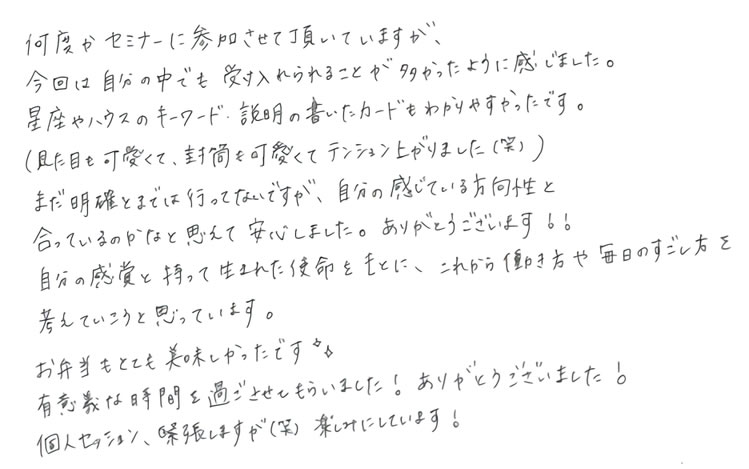 何度かセミナーに参加させて頂いていますが、
今回は自分の中でも受け入れられることが多かったように感じました。
星座やハウスのキーワード・説明の書いたカードもわかりやすかったです。
(見た目も可愛くて、封筒も可愛くてテンション上がりました(笑))
まだ明確とまでは行ってないですが、自分の感じている方向性と
合っているのかなと思えて安心しました。ありがとうございます!!
自分の感覚と持って生まれた使命をもとに、これから働き方や毎日のすごし方を
考えていこうと思っています。
お弁当もとても美味しかったです✧✧
有意義な時間を過ごさせてもらいました!ありがとうございました!
個人セッション、緊張しますが(笑)楽しみにしています!